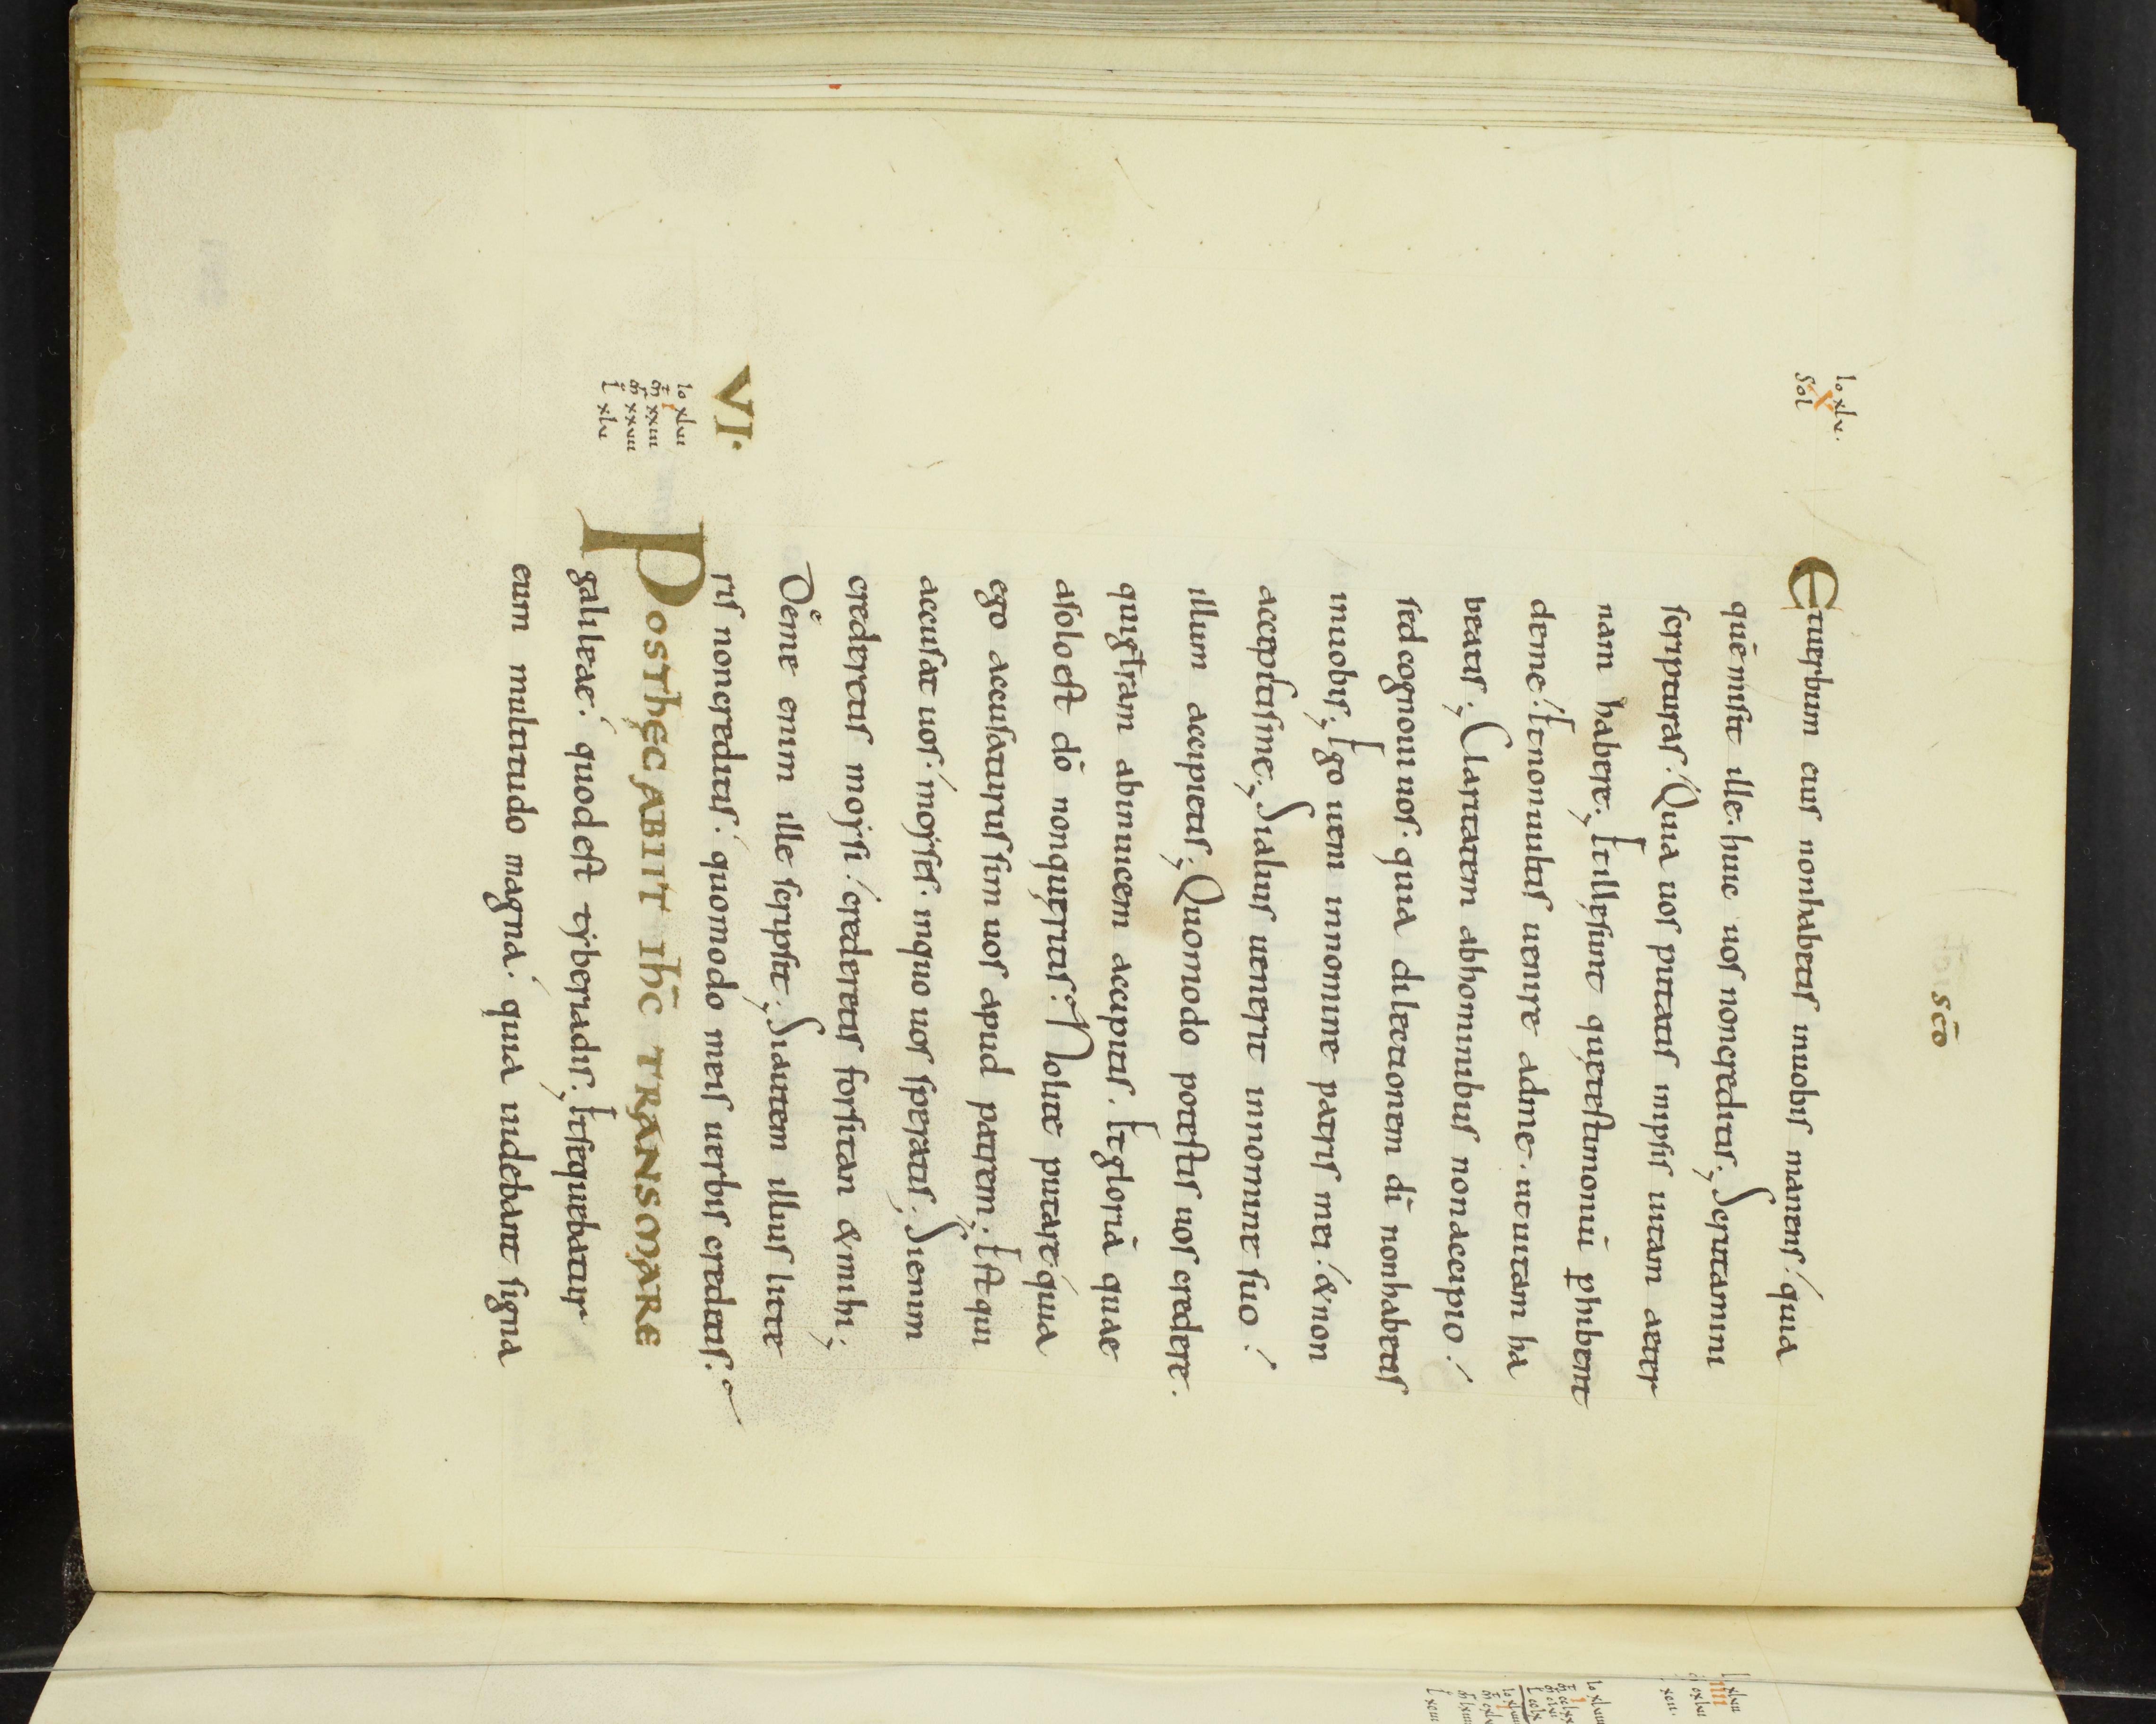 sco̅
lo xlv.
X
sol
Etuerbum eius nonhabetis inuobis manens: quia
que̅ misit ille. huic uos noncreditis; Scrutamini
scripturas: Quia uos putatis inipsis uitam aeter
nam habere; Etillęsunt quętestimoniu̅ ꝑhibent
deme: Etnonuultis uenire adme. utuitam ha
beatis; Claritatem abhominibus nonaccipio:
sed cognoui uos. quia dilectionem di̅ nonhabetis
inuobis; Ego ueni innomine patris mei: & non
accepistisme; Sialius uenerit innomine suo:
illum accipietis; Quomodo potestis uos credere.
quigłram abinuicem accipitis. Etgloria̅ quae
asolo est do̅ nonquęritis: Nolite putare quia
ego accusaturus sim uos apud patrem; Est qui
accusat uos. moyses. inquo uos speratis; Sienim
crederetis moysi: crederetis forsitan & mihi;
Deme enim ille scripsit; Siautem illius litte
ris noncreditis. quomodo meis uerbis credetis:
VI.
lo xlvi
I
m̅ xxiii
m̅r xxvii
l xlv
POSTHĘC ABIIT IHC̅ TRANSMARE
galileae. quod est tyberiadis; Etsequebatur
eum multitudo magna. quia uidebant signa